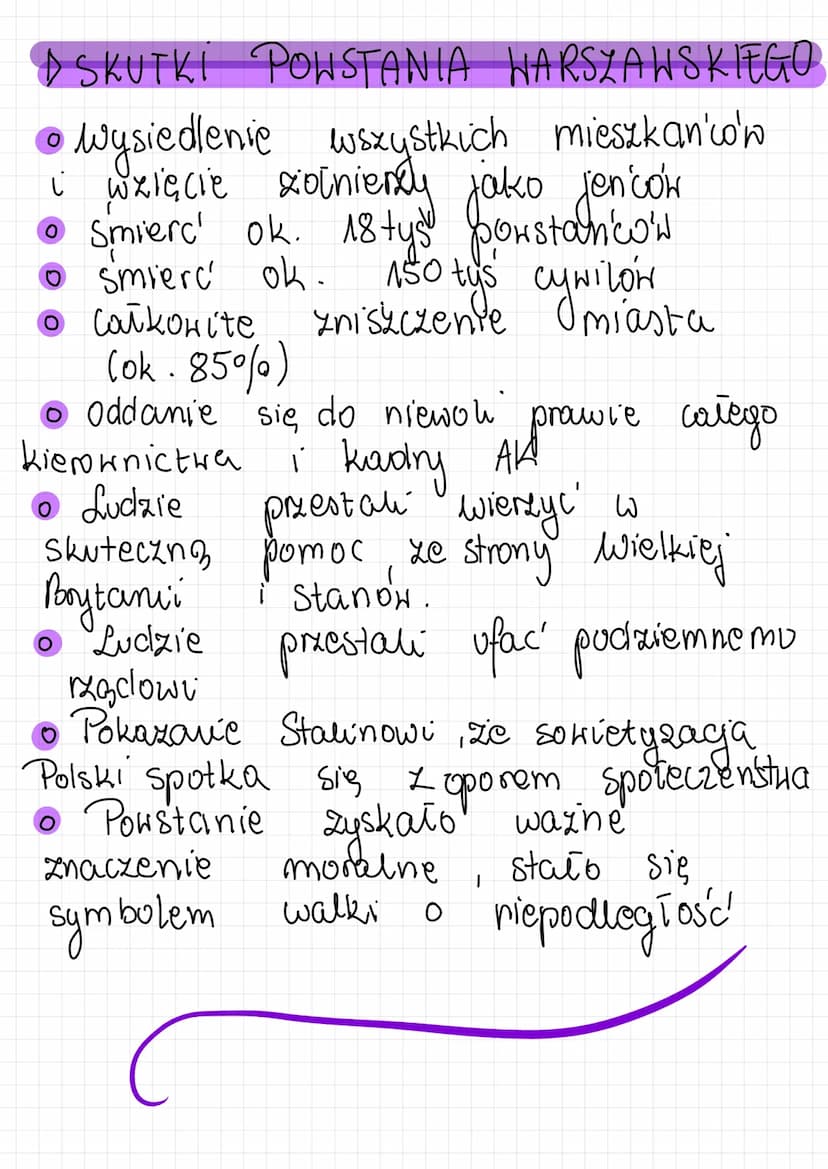 ▷ SKUTKI POWSTANIA WARSZAWSKIEGO
o wysiedlenie wszystkich mieszkańców
i wzięcie żołnierzy jako jeńców
o śmierć ok. 18 tyś powstańców
o śmierć ok. 150 tyś cywilów
o całkowite zniszczenie miasta
(ok. 85%)
o oddanie się do niewoli prawie całego
kierownictwa i kadry AK
o Ludzie przestali wierzyć w
skuteczną pomoc ze strony Wielkiej
Brytanii i Stanów.
o Ludzie przestali ufać podziemnemu
rządowi
o Pokazanie Stalinowi, że sowietyzacja
Polski spotka się z oporem społeczeństwa
o Powstanie zyskało ważne
znaczenie moralne, stało się
symbolem walki o niepodległość